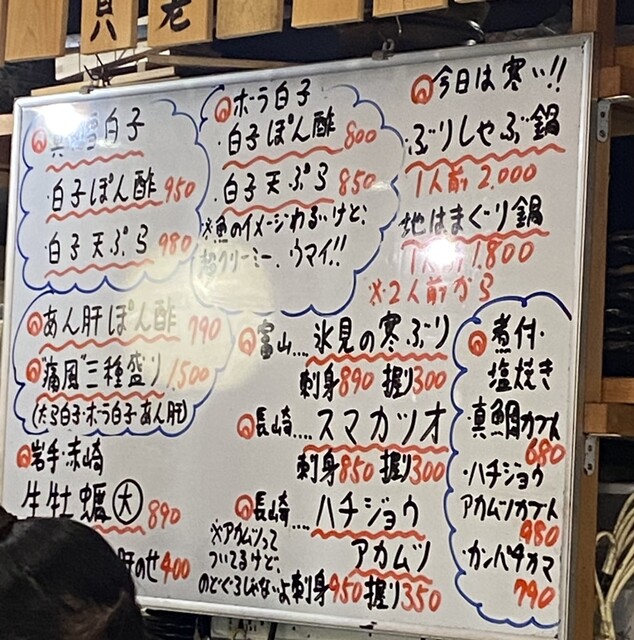 貝
老
真鱈白子
・白子ぽん酢 950
・白子天ぷら 980
ホーラ白子
・白子ぽん酢 800
・白子天ぷら 850
※魚のイメージわるいけど、
超クリーミー、ウマイ!!
今日は寒い!!
ぶりしゃぶ鍋
1人前 2,000
地はまぐり鍋
1人前 1,800
※2人前から
あん肝ぽん酢 790
"痛風"三種盛り 1,500
(たら白子・ホーラ白子・あん肝)
岩手・赤崎
生牡蠣 大 890
肝のせ 400
富山....氷見の寒ぶり
刺身 890 握り 300
長崎....スマカツオ
刺身 850 握り 300
長崎....ハチジョウ
アカムツ
※アカムツって
ついてるけど、
のどぐろじゃないよ 刺身 950 握り 350
煮付・
塩焼き
・真鯛カブト
680
・ハチジョウ
アカムツカブト
980
・カンパチカマ
790